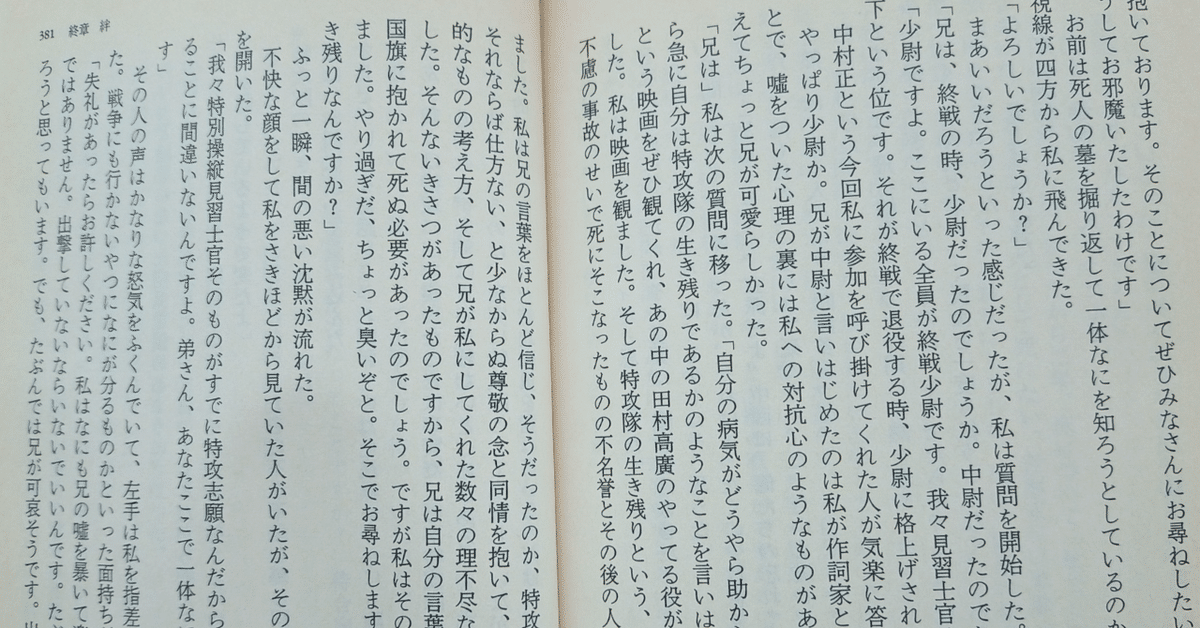 抱いております。そのことについてぜひみなさんにお尋ねしたい
うしてお邪魔いたしたわけです」
お前は死人の墓を掘り返して一体なにを知ろうとしているのか
視線が四方から私に飛んできた。
「よろしいでしょうか?」
まあいいだろうといった感じだったが、私は質問を開始した。
「兄は、終戦の時、少尉だったのでしょうか。中尉だったので
「少尉ですよ。ここにいる全員が終戦少尉です。我々見習士官
下という位です。それが終戦で退役する時、少尉に格上げされ
中村正という今回私に参加を呼び掛けてくれた人が気楽に答
やっぱり少尉か。兄が中尉と言いはじめたのは私が作詞家と
とで、嘘をついた心理の裏には私への対抗心のようなものがあ
えてちょっと兄が可愛らしかった。
「兄は」私は次の質問に移った。「自分の病気がどうやら助か
ら急に自分は特攻隊の生き残りであるかのようなことを言いは
という映画をぜひ観てくれ、あの中の田村高廣のやってる役が
した。私は映画を観ました。そして特攻隊の生き残りという、
不慮の事故のせいで死にそこなったものの不名誉とその後の人
ました。私は兄の言葉をほとんど信じ、そうだったのか、特攻
それならば仕方ない、と少なからぬ尊敬の念と同情を抱いて、
的なものの考え方、そして兄が私にしてくれた数々の理不尽な
した。そんないきさつがあったものですから、兄は自分の言葉
国旗に抱かれて死ぬ必要があったのでしょう。ですが私はその
ました。やり過ぎだ、ちょっと臭いぞと。そこでお尋ねします
き残りなんですか?」
ふっと一瞬、間の悪い沈黙が流れた。
不快な顔をして私をさきほどから見ていた人がいたが、その
を開いた。
「我々特別操縦見習士官そのものがすでに特攻志願なんだから
ることに間違いないんですよ。弟さん、あなたここで一体な
す」
その人の声はかなりな怒気をふくんでいて、左手は私を指差
た。戦争にも行かないやつになにが分るものかといった面持ち
「失礼があったらお許しください。私はなにも兄の嘘を暴いて
ではありません。出撃していないならいないでいいんです。た
ろうと思ってもいます。でも、たぶんでは兄が可哀そうです。出
381 終章 絆